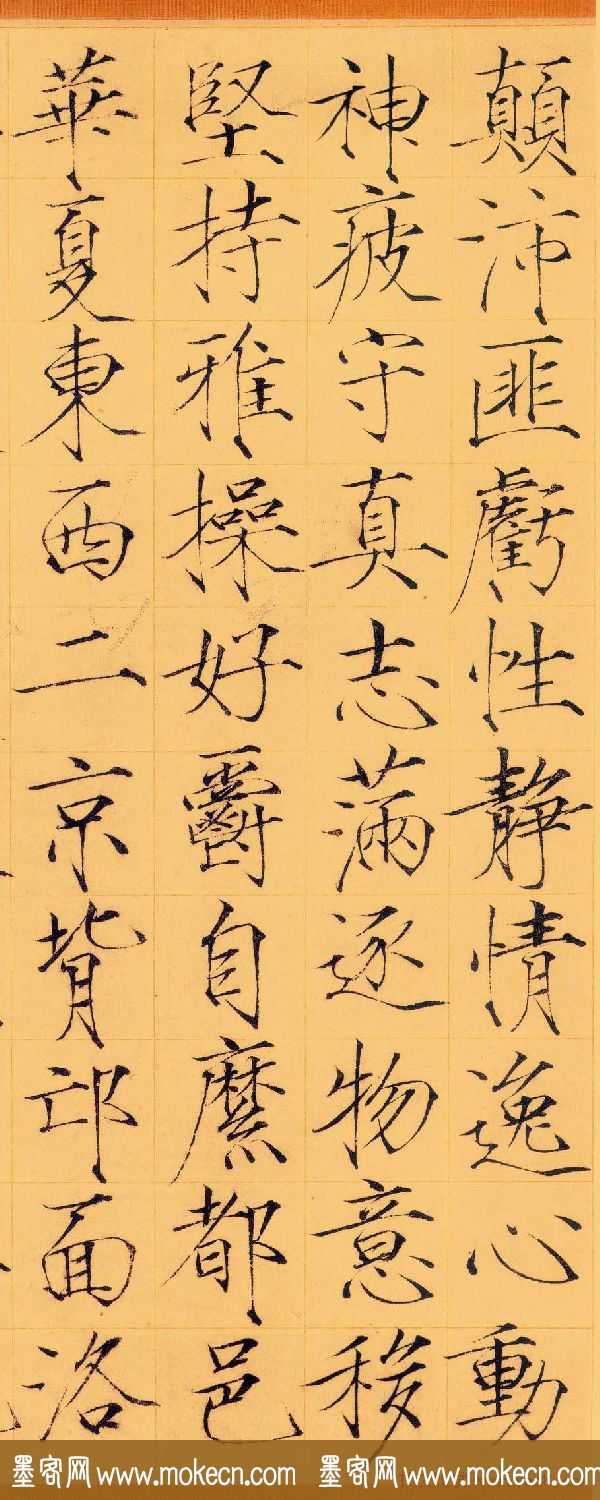 顛沛匪虧性靜情逸心動
神疲守真志滿逐物意移
堅持雅操好爵自縻都邑
華夏東西二京背邙面洛
墨客网 www.mokecn.com 墨客网 www.mokecn.com